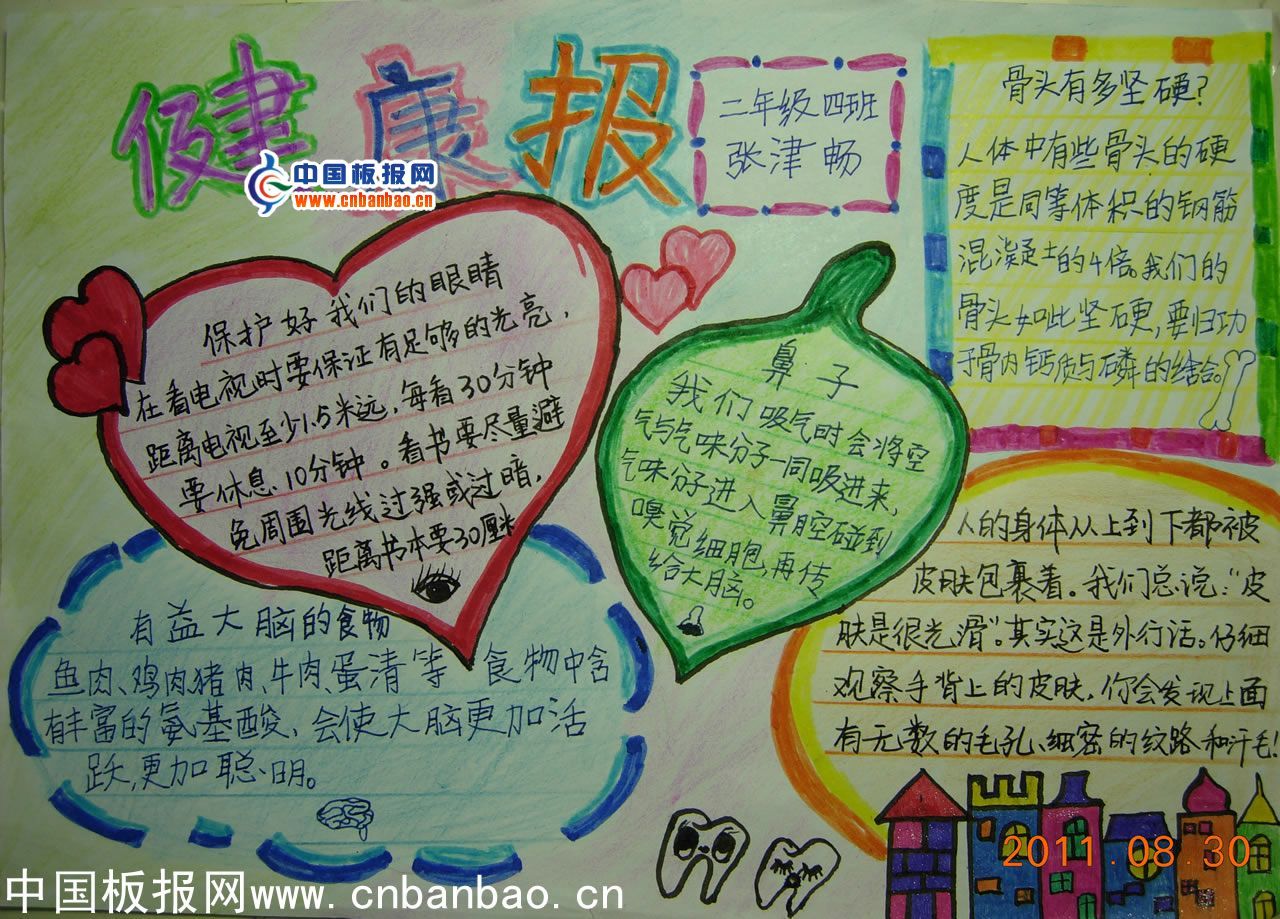 健康报
中国板报网
www.cnbanbao.cn
二年级四班
张津畅
骨头有多坚硬?
人体中有些骨头的硬
度是同等体积的钢筋
混凝土的4倍。我们的
骨头如此坚硬,要归功
于骨内钙质与磷的结合。
保护好我们的眼睛
在看电视时要保证有足够的光亮,
距离电视至少1.5米远,每看30分钟
要休息10分钟。看书要尽量避
免周围光线过强或过暗,
距离书本要30厘米
鼻子
我们吸气时会将空
气与气味分子一同吸进来,
气味分子进入鼻腔碰到
嗅觉细胞,再传
给大脑。
有益大脑的食物
鱼肉、鸡肉、猪肉、牛肉、蛋清等食物中含
有丰富的氨基酸,会使大脑更加活
跃,更加聪明。
人的身体从上到下都被
皮肤包裹着。我们总说:“皮
肤是很光滑”。其实这是外行话。仔细
观察手背上的皮肤,你会发现上面
有无数的毛孔、细密的纹路和汗毛!
2011.08.30
中国板报网www.cnbanbao.cn